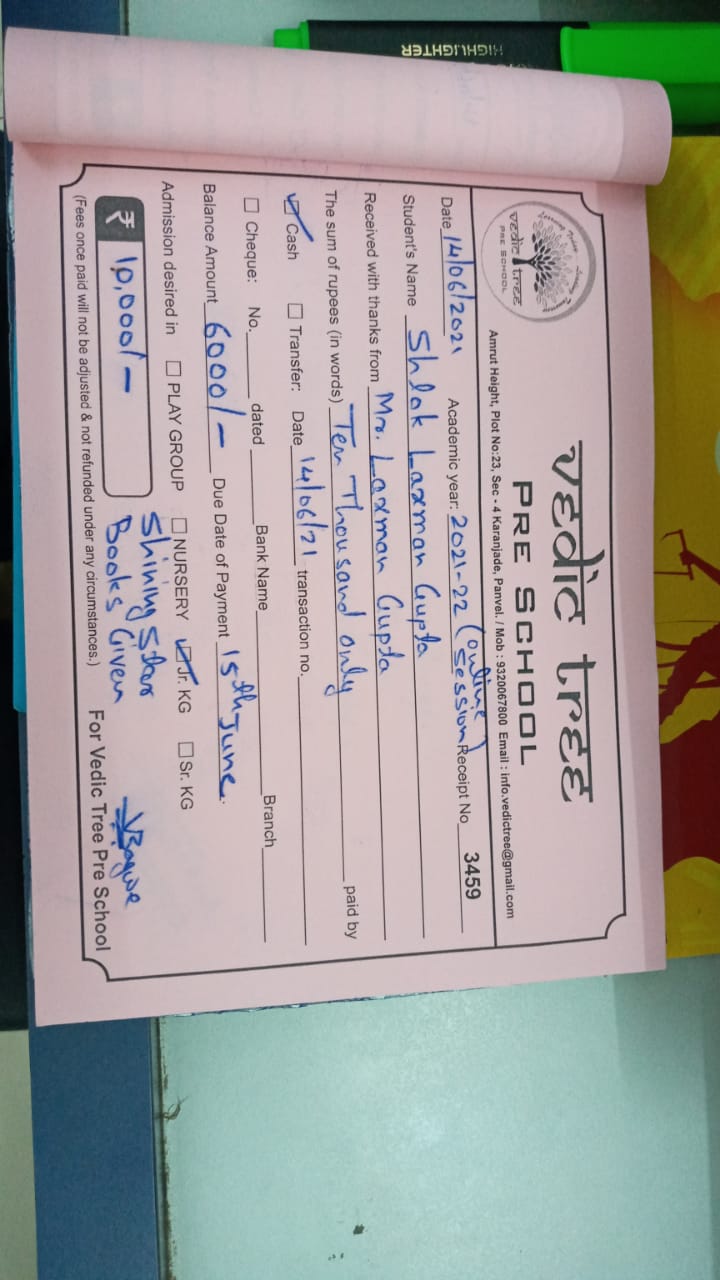 HIGHLIGHTER
vedic tree
PRE SCHOOL
vedic tree
PRE SCHOOL
Amrut Height, Plot No:23, Sec - 4 Karanjade, Panvel. / Mob : 9320067800 Email : info.vedictree@gmail.com
Date 14/06/2021 Academic year: 2021-22 (online session) Receipt No 3459
Student's Name Shlok Laxman Gupta
Received with thanks from Mr. Laxman Gupta
The sum of rupees (in words) Ten Thousand only paid by
Cash Transfer: Date 14/06/21 transaction no.
Cheque: No. dated Bank Name Branch
Balance Amount 6000/- Due Date of Payment 15th June.
Admission desired in PLAY GROUP NURSERY Jr. KG Sr. KG
₹ 10,000/- Shining Star
Books Given
(Fees once paid will not be adjusted & not refunded under any circumstances.) For Vedic Tree Pre School